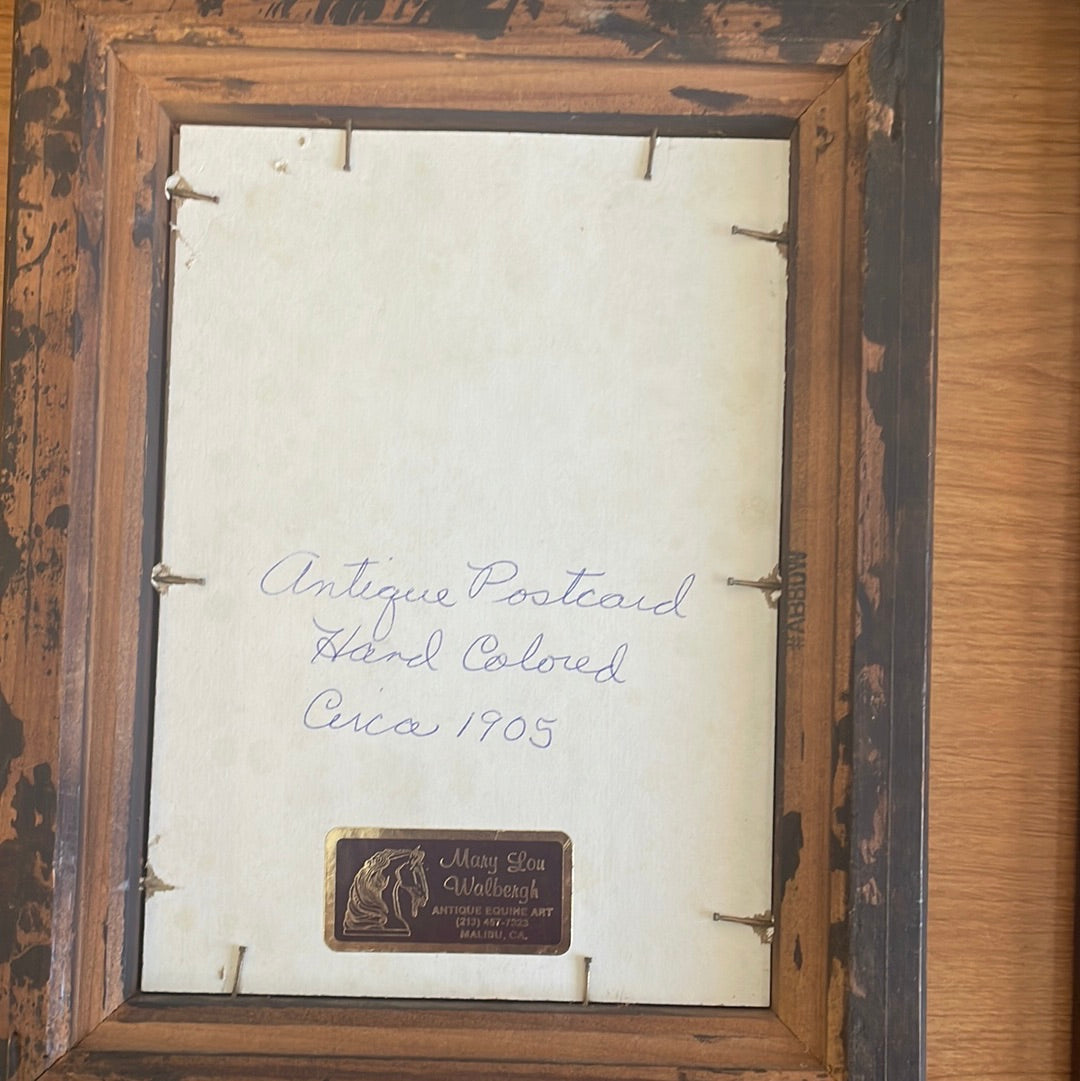 Antique Postcard
Hand Colored
Circa 1905
Mary Lou
Walbergh
ANTIQUE EQUINE ART
(213) 457-7323
MALIBU, CA.